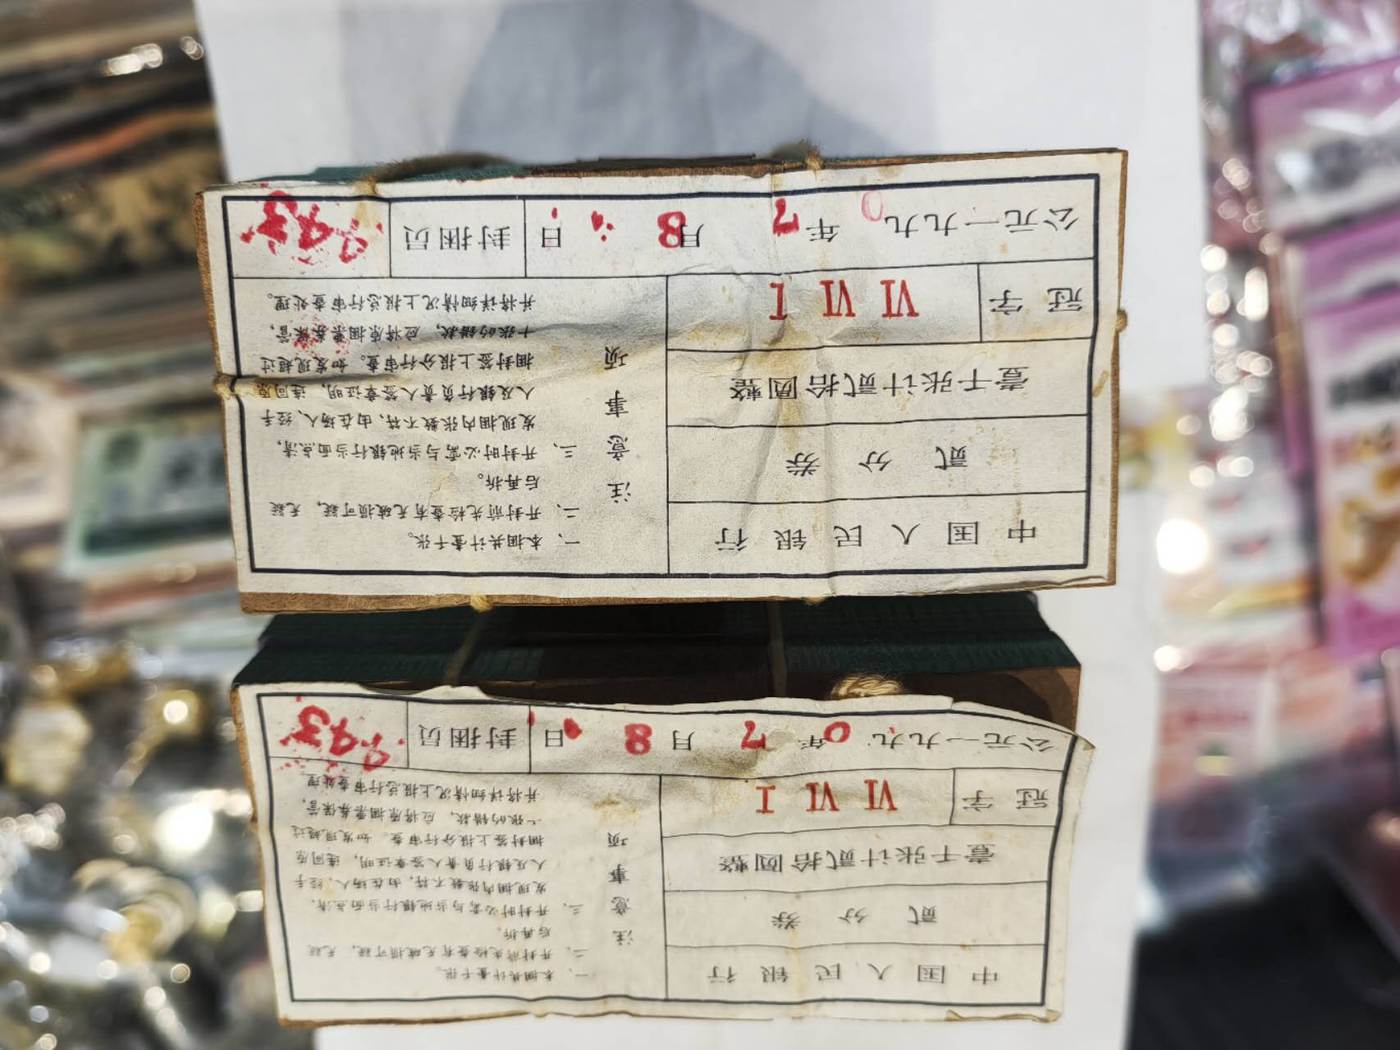 中国人民银行
贰分券
壹千张计贰拾圆整
冠字 VI VI I
注意事项
一、本捆共计壹千张。
二、开封前先检查有无破损可疑，无疑
后再拆。
三、开封时必需与当地银行当面点清，
发现捆内张数不符，由在场人、经手
人及银行负责人签章证明，连同原
捆封签上报分行审查。如发现超过
十张的错款，应将原捆票券保管，
并将详细情况上报总行审查处理。
公元一九九0年7月8日 封捆员
中国人民银行
贰分券
壹千张计贰拾圆整
冠字 VI VI I
注意事项
一、本捆共计壹千张。
二、开封前先检查有无破损可疑，无疑
后再拆。
三、开封时必需与当地银行当面点清，
发现捆内张数不符，由在场人、经手
人及银行负责人签章证明，连同原
捆封签上报分行审查。如发现超过
十张的错款，应将原捆票券保管，
并将详细情况上报总行审查处理。
公元一九九0年7月8日 封捆员